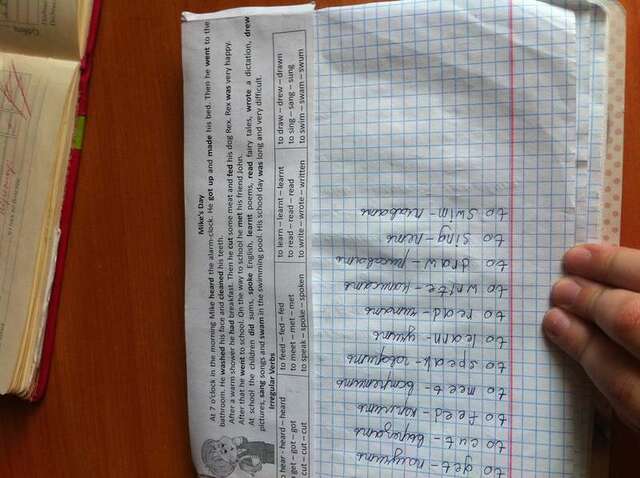 Mike's Day
At 7 o'clock in the morning Mike heard the alarm-clock. He got up and made his bed. Then he went to the
bathroom. He washed his face and cleaned his teeth.
After a warm shower he had breakfast. Then he cut some meat and fed his dog Rex. Rex was very happy.
After that he went to school. On the way to school he met his friend John.
At school the children did sums, spoke English, learnt poems, read fairy tales, wrote a dictation, drew
pictures, sang songs and swam in the swimming pool. His school day was long and very difficult.
Irregular Verbs
o hear - heard – heard
get – got – got
cut – cut – cut
to feed – fed – fed
to meet – met – met
to speak – spoke – spoken
to learn – learnt – learnt
to read – read – read
to write – wrote – written
to draw – drew – drawn
to sing – sang – sung
to swim – swam – swum
to get - получить
to cut - вырезать
to feed - кормить
to meet - встретить
to speak - говорить
to learn - учить
to read - читать
to write - написать
to draw - рисовать
to sing - петь
to swim - плавать